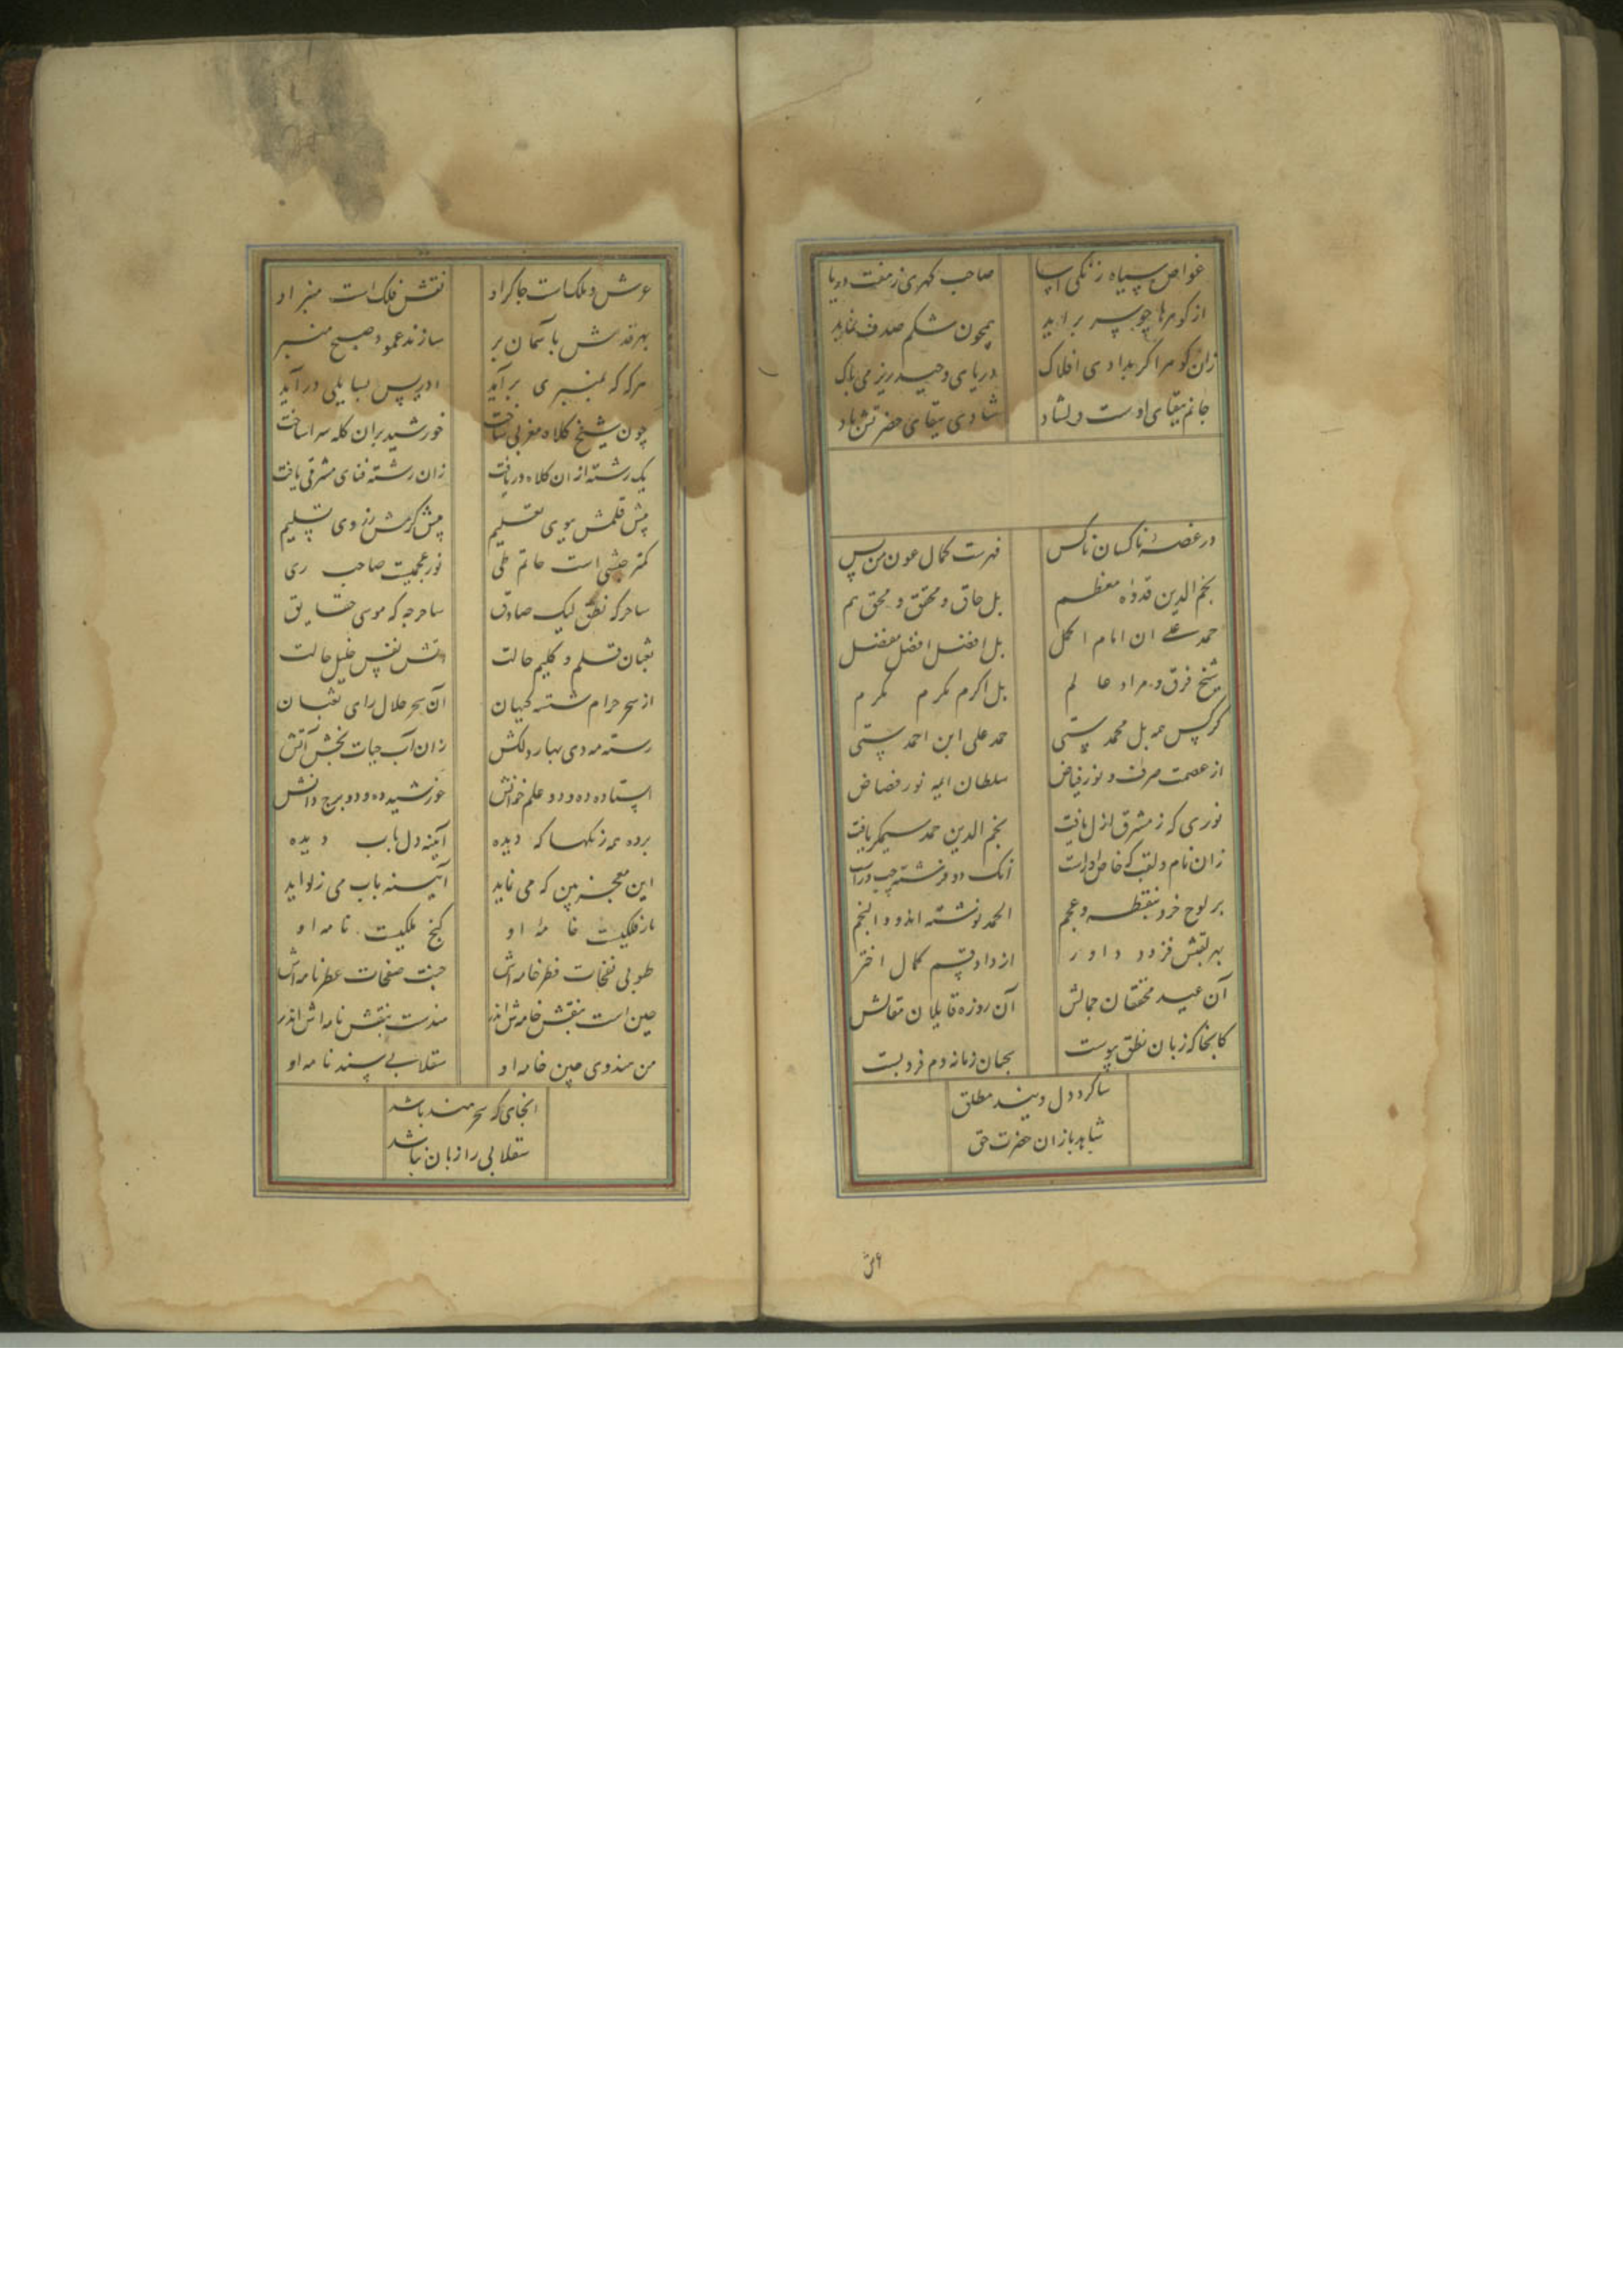 غواص سیاه زنگی آسا صاحب گهری ز هفت دریا
از گوهرها چو سر برآید همچون شکم صدف نماید
زان گوهر اگر بدادی افلاک دریای وحید ریز می باک
جانم ببقای اوست دلشاد شادی ببقای حضرتش باد
در غصهٔ ناکسان ناکس فهرست کمال عون من بس
نجم الدین قدوهٔ معظم بل حاق و محقق و محق هم
حمد علی ان امام اکمل بل افضل افضل مفضل
شیخ فرق و مراد عالم بل اکرم مکرم مکرم
کرکس همه بل محمد ستی حمد علی ابن احمد ستی
از عصمت صرف و نور فیاض سلطان ایمه نور فضاض
نوری که ز مشرق ازل یافت نجم الدین حمد سیمگر یافت
زان نام و لقب که خاص او راست آنک دو فرشته چپ و راست
بر لوح خرد بنقطه و عجم الحمد نوشته اند و والنجم
بهر لقبش فزود داور از داد قسم کمال اختر
آن عید محققان جمالش آن روزه قایلان مقالش
کانجا که زبان نطق پیوست سحبان زمانه دم فرو بست
شاگرد دل ویند مطلق
شاهد بازان حضرت حق
عرش و ملکات جاکر او نقش فلک است منبر او
بهر قدمش با آسمان بر سازند عمود صبح منبر
هرگه که بمنبری برآید ادریس بسایلی درآید
چون شیخ کلاه مغربی ساخت خورشید بران کله سر انداخت
یک رشته از ان کلاه دریافت زان رشته فنای مشرقی یافت
پیش قلمش بوی تعلیم پیش کرمش ز روی تسلیم
کمتر حبشی است حاتم طی نور عجمیت صاحب ری
ساحر که نطق لیک صادق ساحر چه که موسی حقایق
ثعبان قلم و کلیم حالت آتش نفس خلیل حالت
از سحر حرام شسته گیهان آن سحر حلال رای ثعبان
رسته مه دی بهار دلکش زان آب حیات بخش آتش
استاده ده و دو علم خوانش خورشید ده و دو برج دانش
برده همه زنگها که دیده آیینه دل باب دیده
این معجزه بین که می نماید آیینه باب می زداید
مار فلکیست خامهٔ او گنج ملکیست نامه او
طوبی نفحات قطر خامه اش جنت صفحات عطر نامه اش
چین است بنقش خامه ش اندر هندست بنقش نامه اش اندر
من هندوی چین خامه او سقلابی سند نامه او
انجای که سحر هند باشد
سقلابی را زبان نباشد